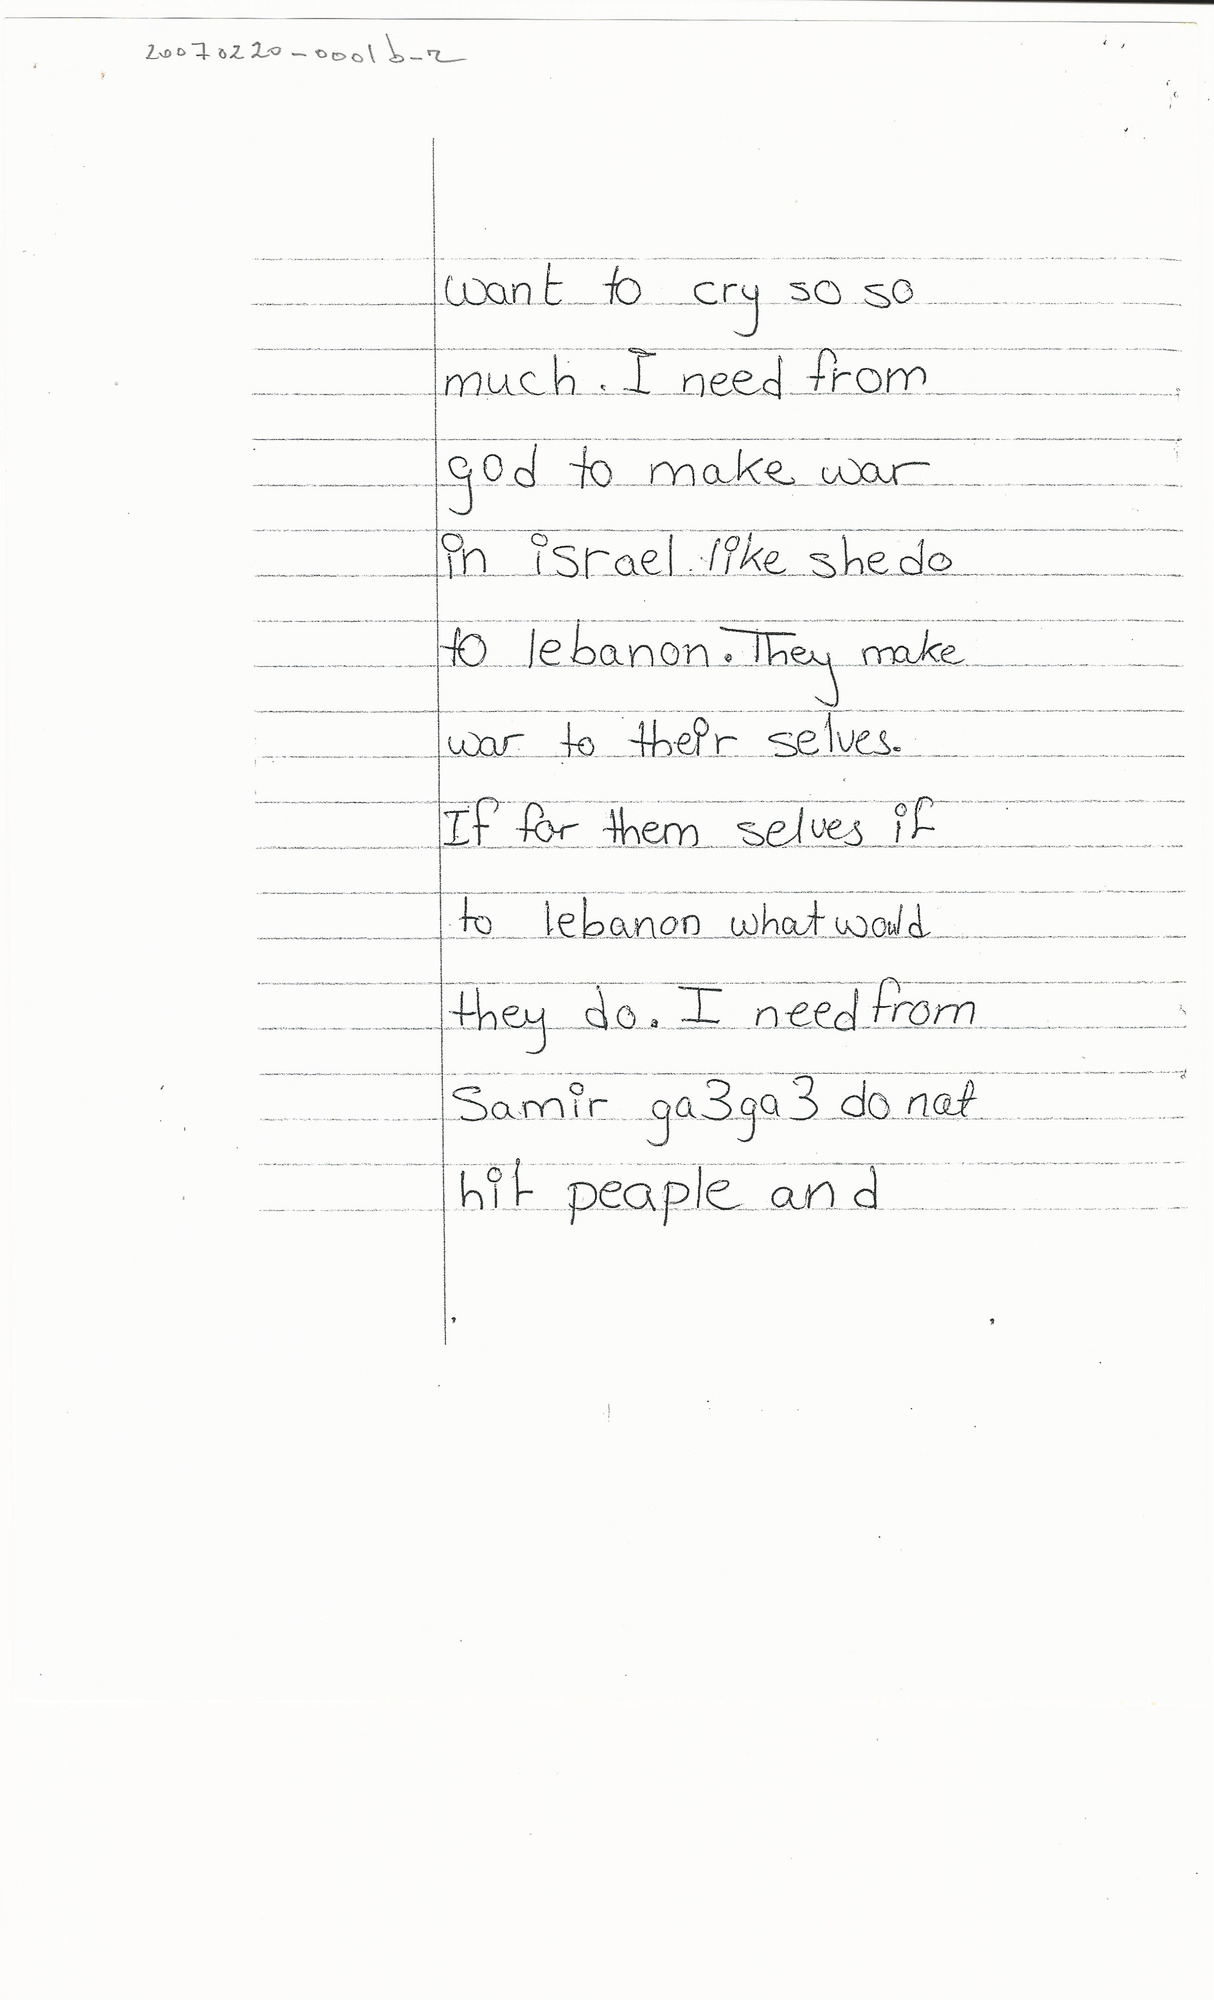 20070220-0001b-r
want to cry so so
much. I need from
god to make war
in israel like she do
to lebanon. They make
war to their selves.
If for them selves if
to lebanon what would
they do. I need from
Samir ga3ga3 do not
hit peaple and